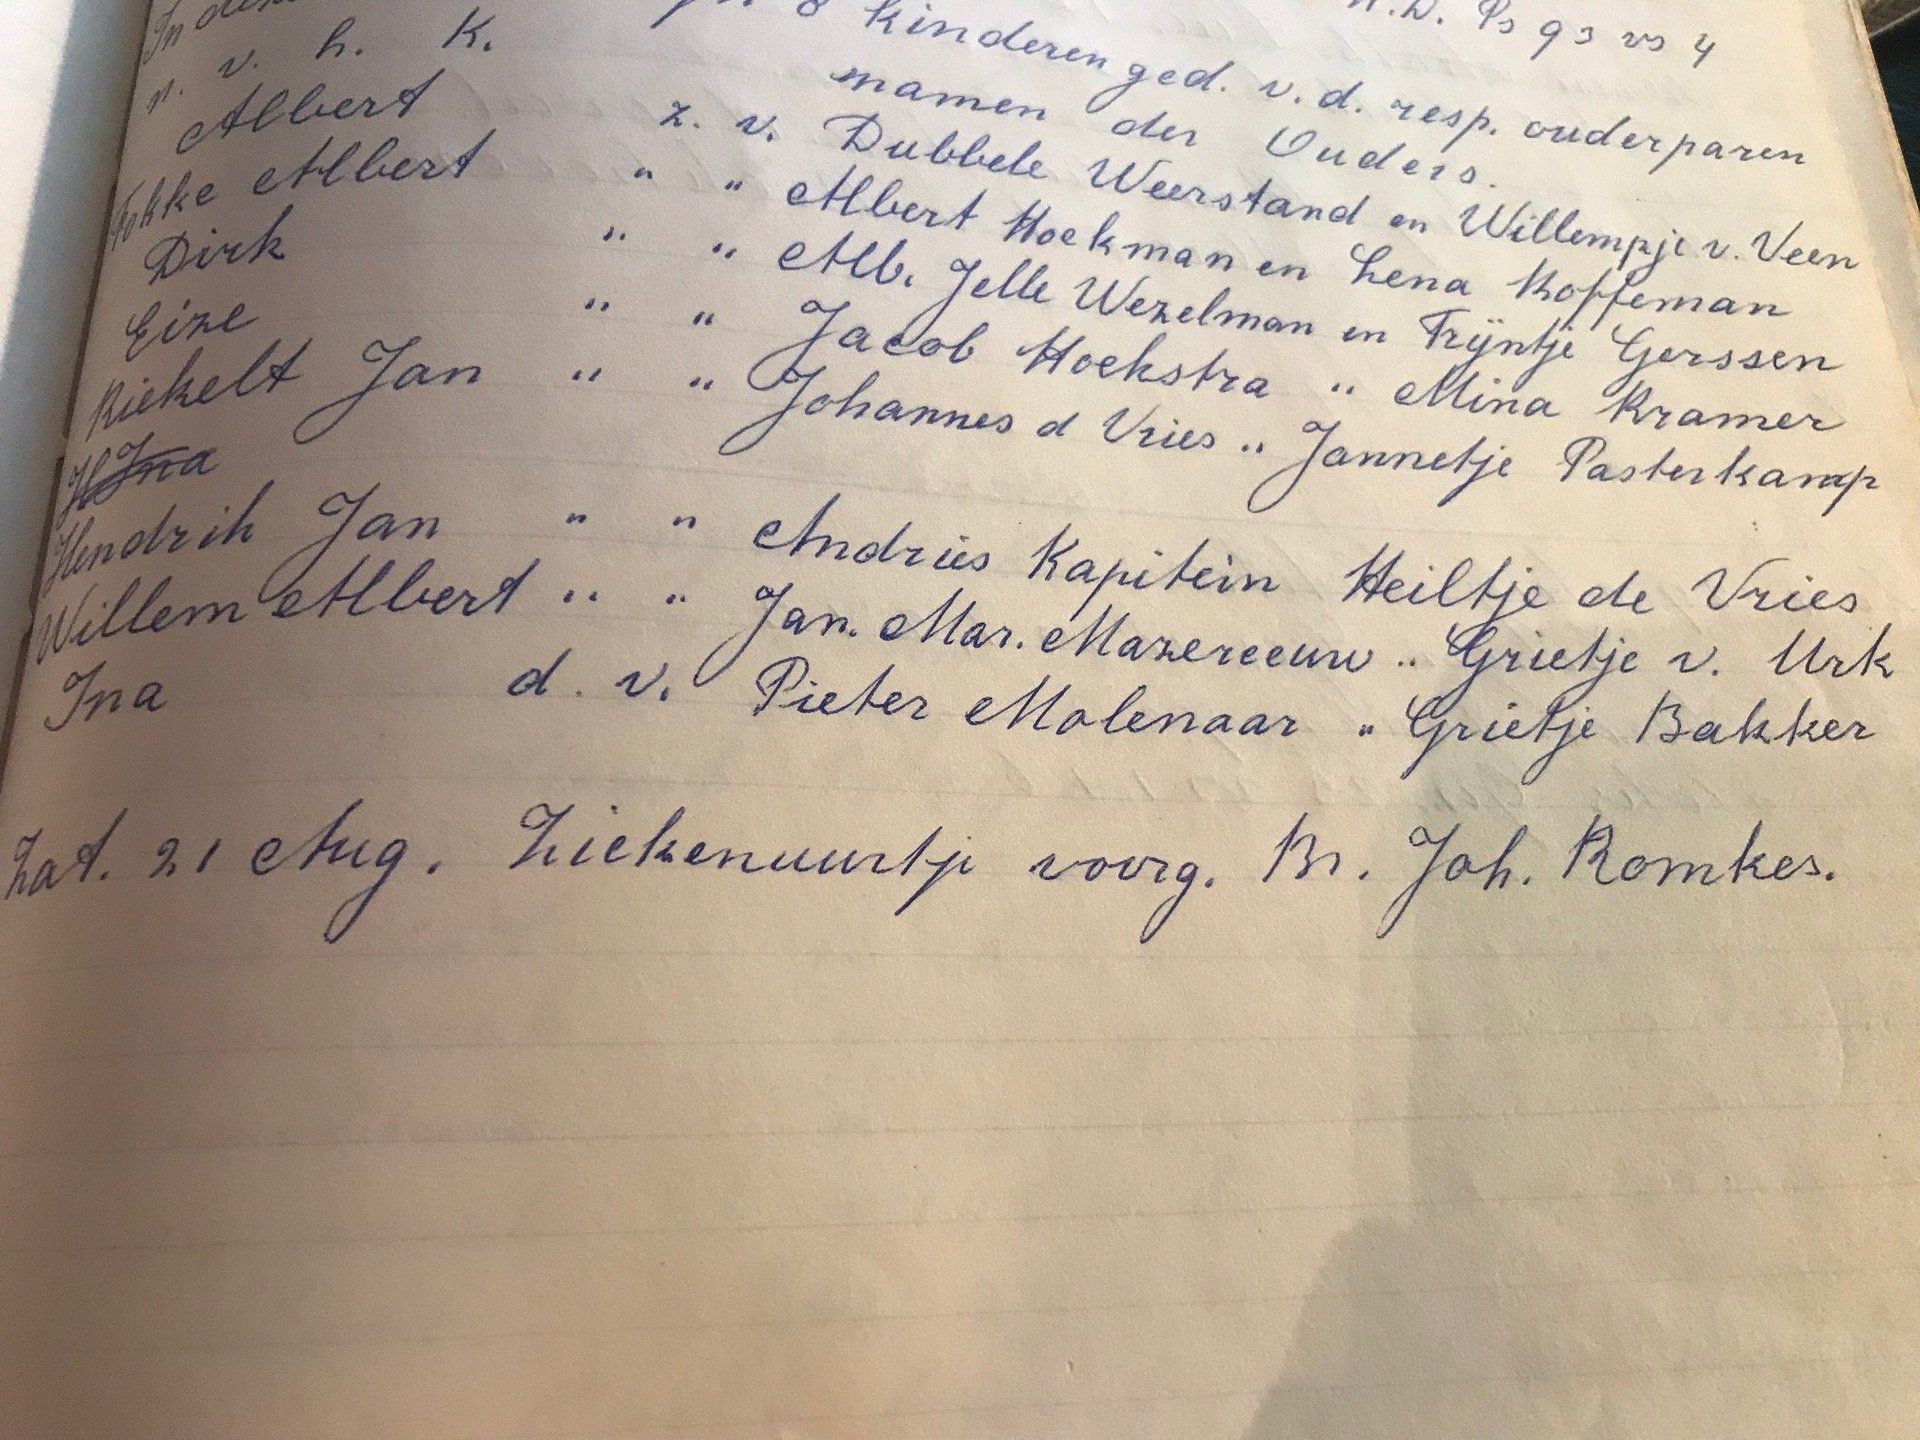 H.D. Ps 93 vs 4
8 kinderen ged. v.d. resp. ouderparen
n. v. h. K. namen der Ouders.
Albert z. v. Dubbele Weerstand en Willempje v. Veen
Fokke Albert " " Albert Hoekman en Lena Koffeman
Dirk " " Alb. Jelle Wezelman en Trijntje Gerssen
Eize " " Jacob Hoekstra " Mina Kramer
Riekelt Jan " " Johannes d Vries " Jannetje Pasterkamp
Hendrik Jan " " Andries Kapitein Heiltje de Vries
Willem Albert " " Jan. Mar. Mazereeuw " Grietje v. Urk
Ina d. v. Pieter Molenaar " Grietje Bakker
Zat. 21 Aug. Ziekenuurtje voorg. Br. Joh. Romkes.